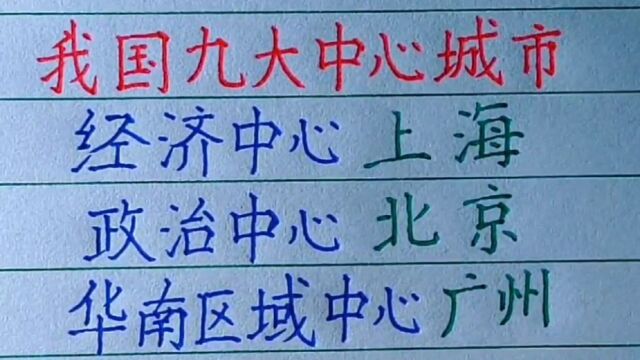 我国九大中心城市
经济中心 上海
政治中心 北京
华南区域中心 广州